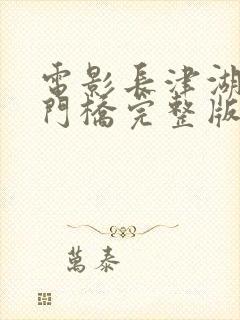 電影長津湖
門橋完整版
萬泰